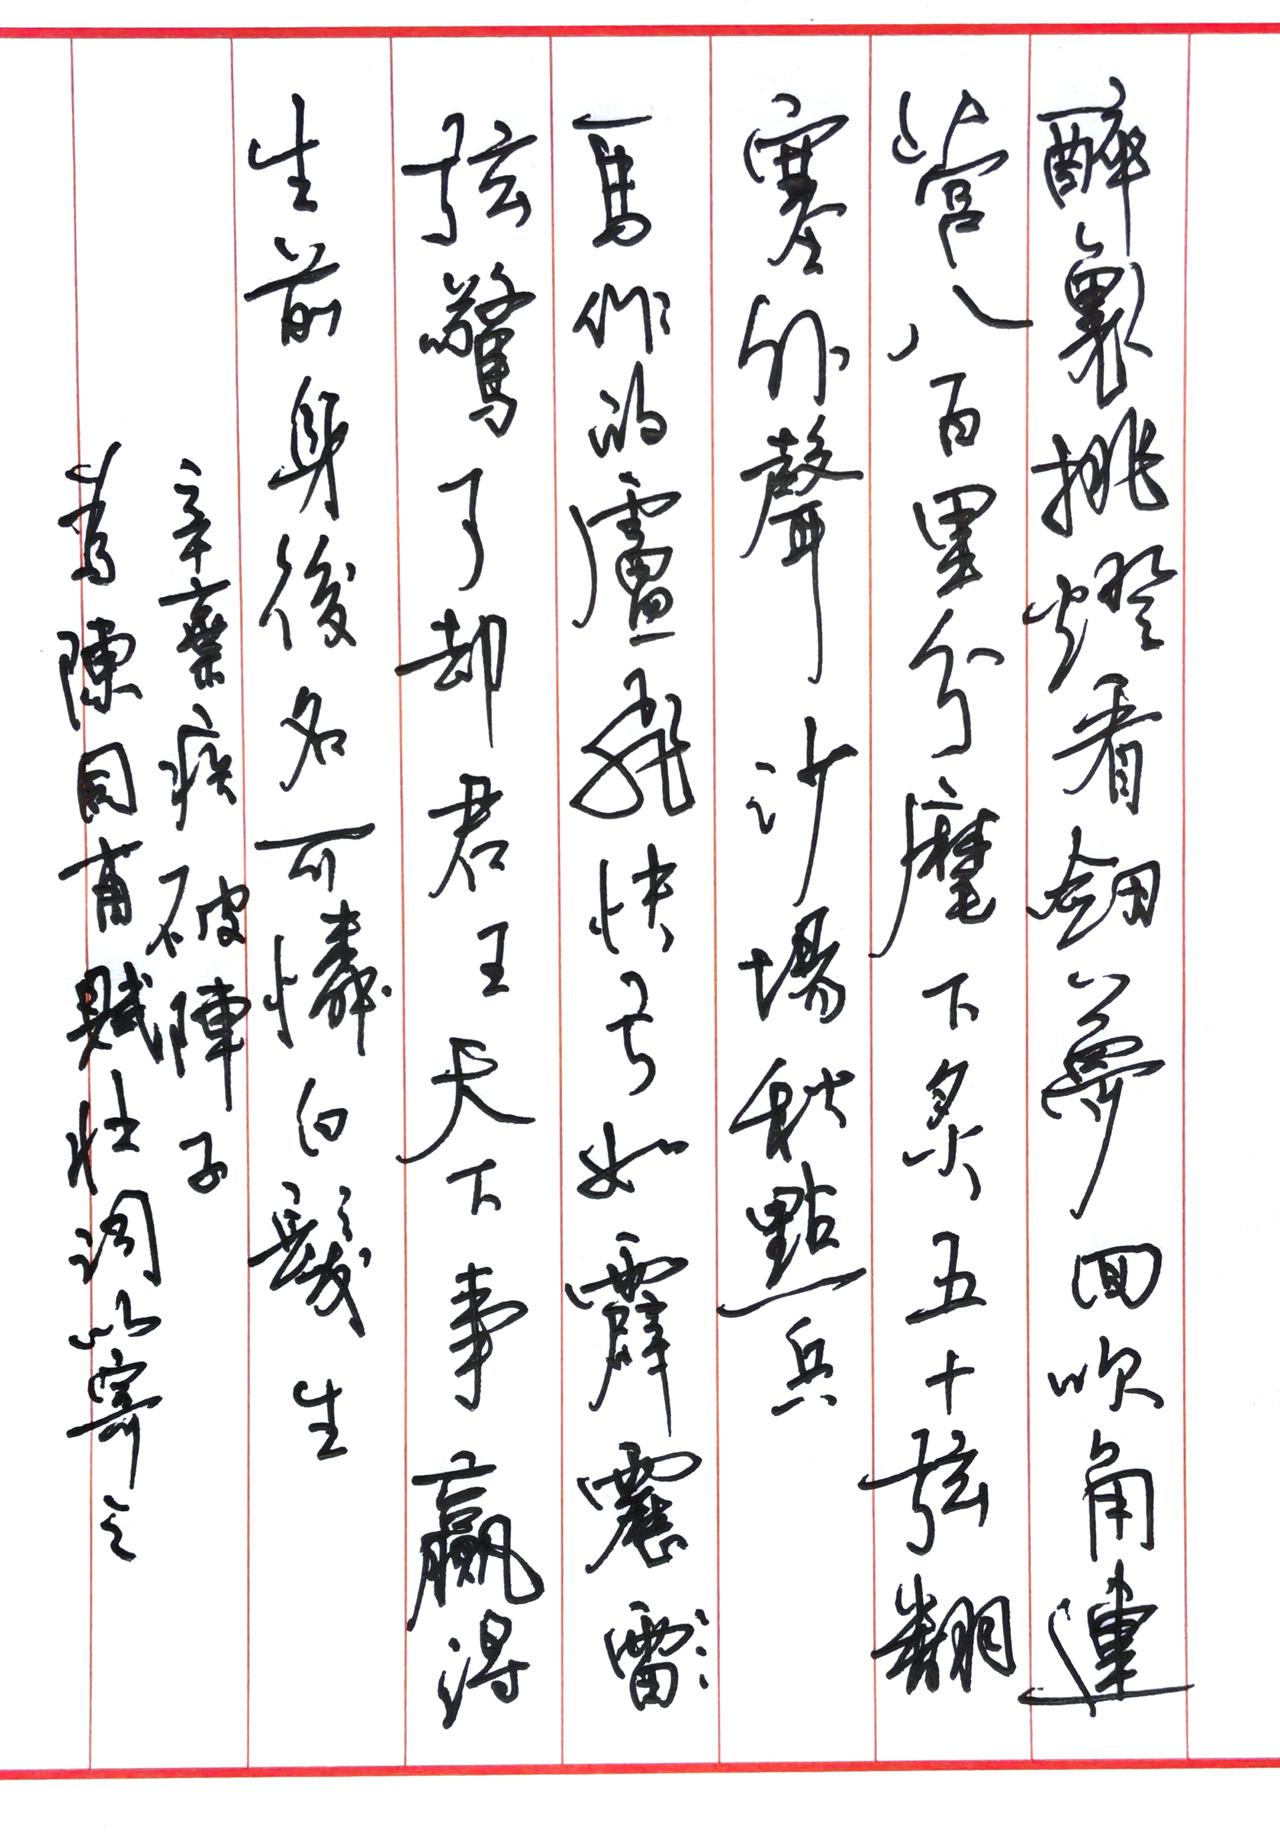 醉裏挑燈看劍夢回吹角連
營八百里分麾下炙五十弦翻
塞外聲沙場秋點兵
馬作的盧飛快弓如霹震雷
弦驚了却君王天下事贏得
生前身後名可憐白髮生
辛棄疾破陣子
為陳同甫賦壯詞以寄之